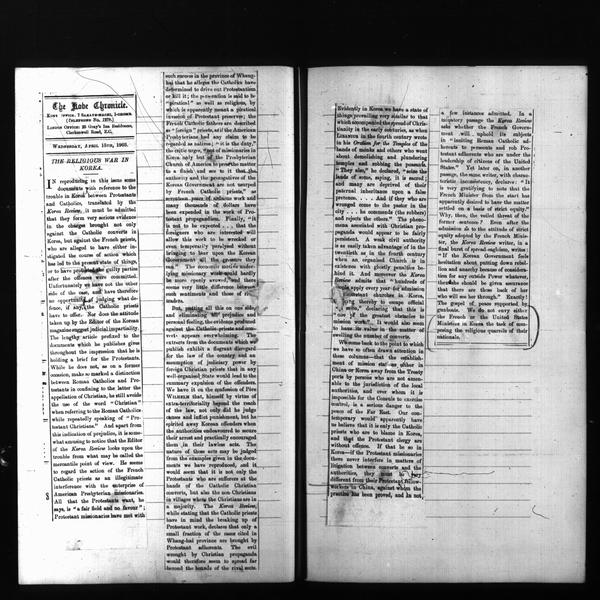 The Kobe Chronicle.
WEDNESDAY, APRIL 15TH, 1903.
THE RELIGIOUS WAR IN
KOREA.
IN reproducing in this issue some
documents with reference to the
trouble in Korea between Protestants
and Catholics, translated by the
Korea Review, it must be admitted
that they form very serious evidence
in the charges brought not only
against the Catholic converts in
Korea, but against the French priests,
who are alleged to have either in-
stigated the course of action which
has led to the present state of things,
or to have protected the guilty parties
after the offences were committed.
Unfortunately we have not the other
side of the case, and have therefore
no opportunity of judging what de-
fence, if any, the Catholic priests
have to offer. Nor does the attitude
taken up by the Editor of the Korean
magazine suggest judicial impartiality.
The lengthy article prefixed to the
documents which he publishes gives
throughout the impression that he is
holding a brief for the Protestants.
While he does not, as on a former
occasion, make so marked a distinction
between Roman Catholics and Pro-
testants in confining to the latter the
appellation of Christian, he still avoids
the use of the word "Christian"
when referring to the Roman Catholics
while repeatedly speaking of "Pro-
testant Christians." And apart from
this indication of prejudice, it is some-
what amusing to notice that the Editor
of the Korea Review looks upon the
trouble from what may be called the
mercantile point of view. He seems
to regard the action of the French
Catholic priests as an illegitimate
interference with the enterprise of
American Presbyterian missionaries.
All that the Protestants want, he
says, is "a fair field and no favour";
Protestant missionaries have met with
such success in the province of Whang-
hai that he alleges the Catholics have
determined to drive out Protestantism
or kill it; the persecution is said to be
"piratical" as well as religious, by
which is apparently meant a piratical
invasion of Protestant preserves; the
French Catholic fathers are described
as "foreign" priests, as if the American
Presbyterians had any claim to be
regarded as natives; "it is the duty,"
the critic urges, "not of missionaries in
Korea only but of the Presbyterian
Church of America to push the matter
to a finish and see to it that the
authority and the prerogatives of the
Korean Government are not usurped
by French Catholic priests," as
seventeen years of arduous work and
many thousands of dollars have
been expended in the work of Pro-
testant propagandism. Finally, "it
is not to be expected . . . that the
foreigners who are interested will
allow this work to be wrecked or
even temporarily paralyzed without
bringing to bear upon the Korean
Government all the pressure they
can." The economic motive under-
lying missionary work could hardly
be more openly avowed, and there
seems very little difference between
such sentiments and those of
traders.
But, putting all this on one side,
and eliminating all prejudice and
personal feeling, the evidence produced
against the Catholic priests and con-
verts appears overwhelming. The
extracts from the documents which we
publish exhibit a flagrant disregard
for the law of the country, and an
assumption of judiciary power by
foreign Christian priests that in any
well-organised State would lead to the
summary expulsion of the offenders.
We have it on the confession of Père
WILHELM that, himself by virtue of
extra-territoriality beyond the reach
of the law, not only did he judge
causes and inflict punishment, but he
spirited away Korean offenders when
the authorities endeavoured to secure
their arrest and practically encouraged
them in their lawless acts. The
nature of those acts may be judged
from the examples given in the docu-
ments we have reproduced, and it
would seem that it is not only the
Protestants who are sufferers at the
hands of the Catholic Christian
converts, but also the non-Christians
in villages where the Christians are in
a majority. The Korea Review,
while stating that the Catholic priests
have in mind the breaking up of
Protestant work, declares that only a
small fraction of the cases cited in
Whang-hai province are brought by
Protestant adherents. The evil
wrought by Christian propaganda
would therefore seem to spread far
beyond the bounds of the rival sects.
Evidently in Korea we have a state of
things prevailing very similar to that
which accompanied the spread of Chris-
tianity in the early centuries, as when
LIBANIUS in the fourth century wrote
in his Oration for the Temples of the
bands of monks and others who went
about demolishing and plundering
temples and robbing the peasants.
"They also," he declared, "seize the
lands of some, saying, it is sacred:
and many are deprived of their
paternal inheritance upon a false
pretence. . . . And if they who are
wronged come to the pastor in the
city . . . he commends (the robbers)
and rejects the others." The pheno-
mena associated with Christian pro-
paganda would appear to be fairly
persistent. A weak civil authority
is as easily taken advantage of in the
twentieth as in the fourth century
when an organised Church is in
existence with ghostly penalties be-
hind it. And moreover the Korea
Review admits that "hundreds of
people apply every year for admission
to Protestant churches in Korea,
thereby to escape official
declaring that this is
one of the greatest obstacles to
mission work". It would also seem
to have its value in the matter of
swelling the number of converts.
We come back to the point to which
we have so often drawn attention in
these columns—that the establish-
ment of mission stations either in
China or Korea away from the Treaty
ports by persons who are not amen-
able to the jurisdiction of the local
authorities, and over whom it is
impossible for the Consuls to exercise
control, is a serious danger to the
peace of the Far East. Our con-
temporary would apparently have
us believe that it is only the Catholic
priests who are to blame in Korea,
and that the Protestant clergy are
without offence. If that be so in
Korea—if the Protestant missionaries
there never interfere in matters of
litigation between converts and the
authorities, they must be very
different from their Protestant fellow-
workers in China, against whom the
practice has been proved, and in not
a few instances admitted. In a
minatory passage the Korea Review
asks whether the French Govern-
ment will uphold its subjects
in "inciting Roman Catholic ad-
herents to persecute and rob Pro-
testant adherents who are under the
leadership of citizens of the United
States." Yet later on, in another
passage, the same writer, with charac-
teristic inconsistency, declares: "It
is very gratifying to note that the
French Minister from the start has
apparently desired to have the matter
settled on a basis of strict equity."
Why, then, the veiled threat of the
former sentence? Even after the
admission as to the attitude of strict
equity adopted by the French Minis-
ter, the Korea Review writer, in a
final burst of spread-eagleism, writes:
"If the Korean Government feels
hesitation about putting down rebel-
lion and anarchy because of considera-
tion for any outside Power whatever,
these should be given assurance
that there are those back of her
who will see her through." Exactly!
The gospel of peace supported by
gunboats. We do not envy either
the French or the United States
Ministers in Korea the task of com-
posing the religious quarrels of their
nationals.